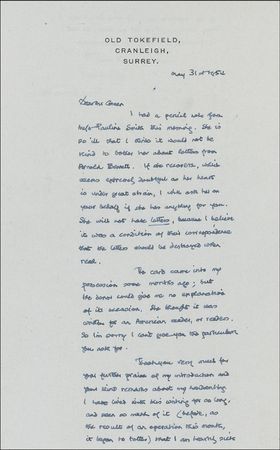 OLD TOKEFIELD,
CRANLEIGH,
SURREY.
May 31st 1952
Dear Mr
I had a pencil note from
Pauline Smith this morning. She is
so ill that I think it would not be
kind to bother her about letters from
Arnold Bennett. If she recovers, which
seems extremely doubtful as her heart
is under great strain, I will ask her on
your behalf if she has anything for you.
She will not have letters, because I believe
it was a condition of their correspondence
that the letters should be destroyed when
read.
The card came into my
possession some months ago; but
the donor could give me no explanation
of its occasion. She thought it was
written for an American reader, or readers.
So I'm sorry I can't give you the particulars
you ask for.
Thank you very much for
your further praise of my introduction and
your kind remarks about my handwriting
I have lived with this writing for so long,
and seen so much of it (before, as
the results of an operation this month,
it began to totter) that I am heartily sick